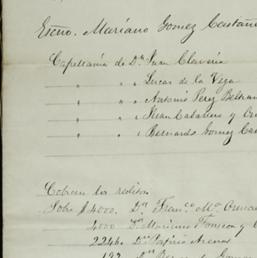 Estno. Mariano Gomez Castañe
Capellanía de Dn Juan Clavería
" " " Lucas de la Vega
" " " Antonio Perez Beltran
" " " Juan Caballero y
" " " Bernardo Gomez Cas
Cobran los reditos
Sobre $4000. Dn Franco Ma
4000 Dn Mariano Fonseca y
2246. Dn Arenas